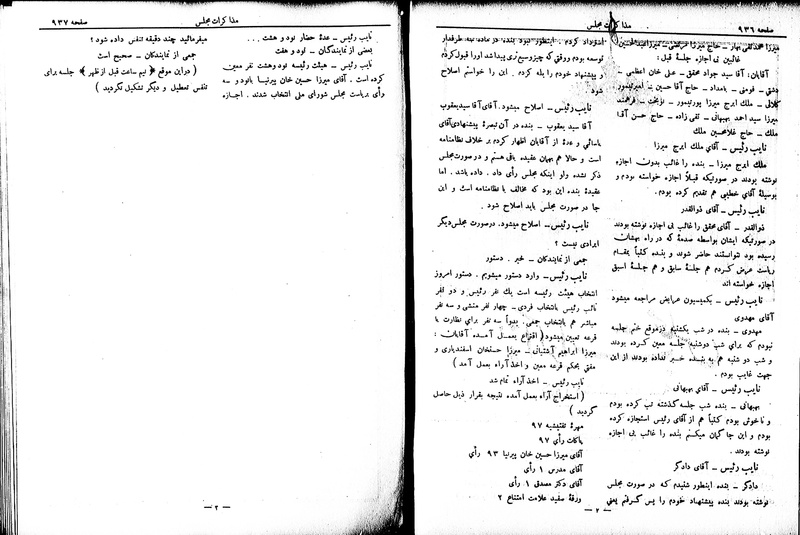 صفحه ۹۳۶
مذاکرات مجلس
غائبین بی اجازه جلسهٔ قبل :
آقایان: آقا سید جواد محقق – علی خان اعظمی –
دشتی – فومنی – بامداد – حاج آقا حسین – امیرتیمور
کلالی – ملک ایرج میرزا پورتیمور – نوبخت – فرهمند
میرزا سید احمد بهبهانی – تقی زاده – حاج حسن آقا
ملک – حاج غلامحسین ملک
نایب رئیس – آقای ملک ایرج میرزا
ملک ایرج میرزا – بنده را غائب بدون اجازه
نوشته بودند در صورتیکه قبلاً اجازه خواسته بودم و
بوسیلهٔ آقای خطیبی هم تقدیم کرده بودم .
نایب رئیس – آقای ذوالقدر
ذوالقدر – آقای محقق را غائب بی اجازه نوشته بودند
در صورتیکه ایشان بواسطه صدمهٔ که در راه بهشان
رسیده بود نتوانستند حاضر شوند و بنده کتباً بمقام
ریاست عرض کردم هم جلسهٔ سابق و هم جلسهٔ اسبق
اجازه خواسته اند
نایب رئیس – بکمیسیون عرایض مراجعه میشود
آقای مهدوی
مهدوی – بنده در شب یکشنبه درموقع ختم جلسه
نبودم که برای شب دوشنبه جلسه معین کرده بودند
و شب دو شنبه هم به بنده خبر نداده بودند از این
جهت غایب بودم .
نایب رئیس – آقای بهبهانی
بهبهانی – بنده شب جلسه گذشته تب کرده بودم
و ناخوش بودم کتباً هم از آقای رئیس استجازه کرده
بودم و این جا گمان میکنم بنده را غائب بی اجازه
نوشته بودند .
نایب رئیس – آقای دادگر
دادگر – بنده اینطور شنیدم که در صورت مجلس
نوشته بودند بنده پیشنهاد خودم را پس گرفتم یعنی
استرداد کردم . اینطور نبود بنده در ماده به طرفدار
توسعه بودم ووقتی که چیزوسیع تری پیداشد اورا قبول کردم
و پیشنهاد خودم را بله کردم . این را خواستم اصلاح
شود
نایب رئیس – اصلاح میشود. آقای آقا سید یعقوب
آقا سید یعقوب – بنده در آن تبصرهٔ پیشنهادی آقای
یاسائی و عدهٔ از آقایان اظهار کردم بر خلاف نظامنامه
است و حالا هم بهمان عقیده باقی هستم و در صورت مجلس
ذکر نشده ولو اینکه مجلس رأی داد . داده باشد . اما
عقیدهٔ بنده این بود که مخالف با نظامنامه است و این
جا در صورت مجلس باید اصلاح شود .
نایب رئیس – اصلاح میشود. درصورت مجلس دیگر
ایرادی نیست ؟
جمعی از نمایندگان – خیر . دستور
نایب رئیس – وارد دستور میشویم . دستور امروز
انتخاب هیئت رئیسه است یك نفر رئیس و دو نفر
نائب رئیس بانتخاب فردی – چهار نفر منشی و سه نفر
مباشر هم بانتخاب جمعی. بدواً سه نفر برای نظارت با
قرعه تعیین میشود ( اقتراع بعمل آمده آقایان :
میرزا ابراهیم آشتیانی – میرزا حسنخان اسفندیاری و
مفتی بحکم قرعه معین و اخذ آراء بعمل آمد )
نایب رئیس – اخذ آراء تمام شد
( استخراج آراء بعمل آمده نتیجه بقرار ذیل حاصل
گردید )
مهرهٔ تفتیشیه ۹۷
پاکات رأی ۹۷
آقای میرزا حسین خان پیرنیا ۹۳ رأی
آقای مدرس ۱ رأی
آقای دکتر مصدق ۱ رأی
ورقهٔ سفید علامت امتناع ۲
– ۲ –
مذاکرات مجلس
صفحه ۹۳۷
نایب رئیس – عدهٔ حضار نود و هشت . . .
بعضی از نمایندگان – نود و هفت
نایب رئیس – هیئت رئیسه نود وهشت نفر معین
کرده است . آقای میرزا حسین خان پیرنیا بانود و سه
رأی بریاست مجلس شورای ملی انتخاب شدند . اجازه
میفرمائید چند دقیقه تنفس داده شود ؟
جمعی از نمایندگان – صحیح است
( دراین موقع ( نیم ساعت قبل از ظهر ) جلسه برای
تنفس تعطیل و دیگر تشکیل نگردید )
– ۲ –